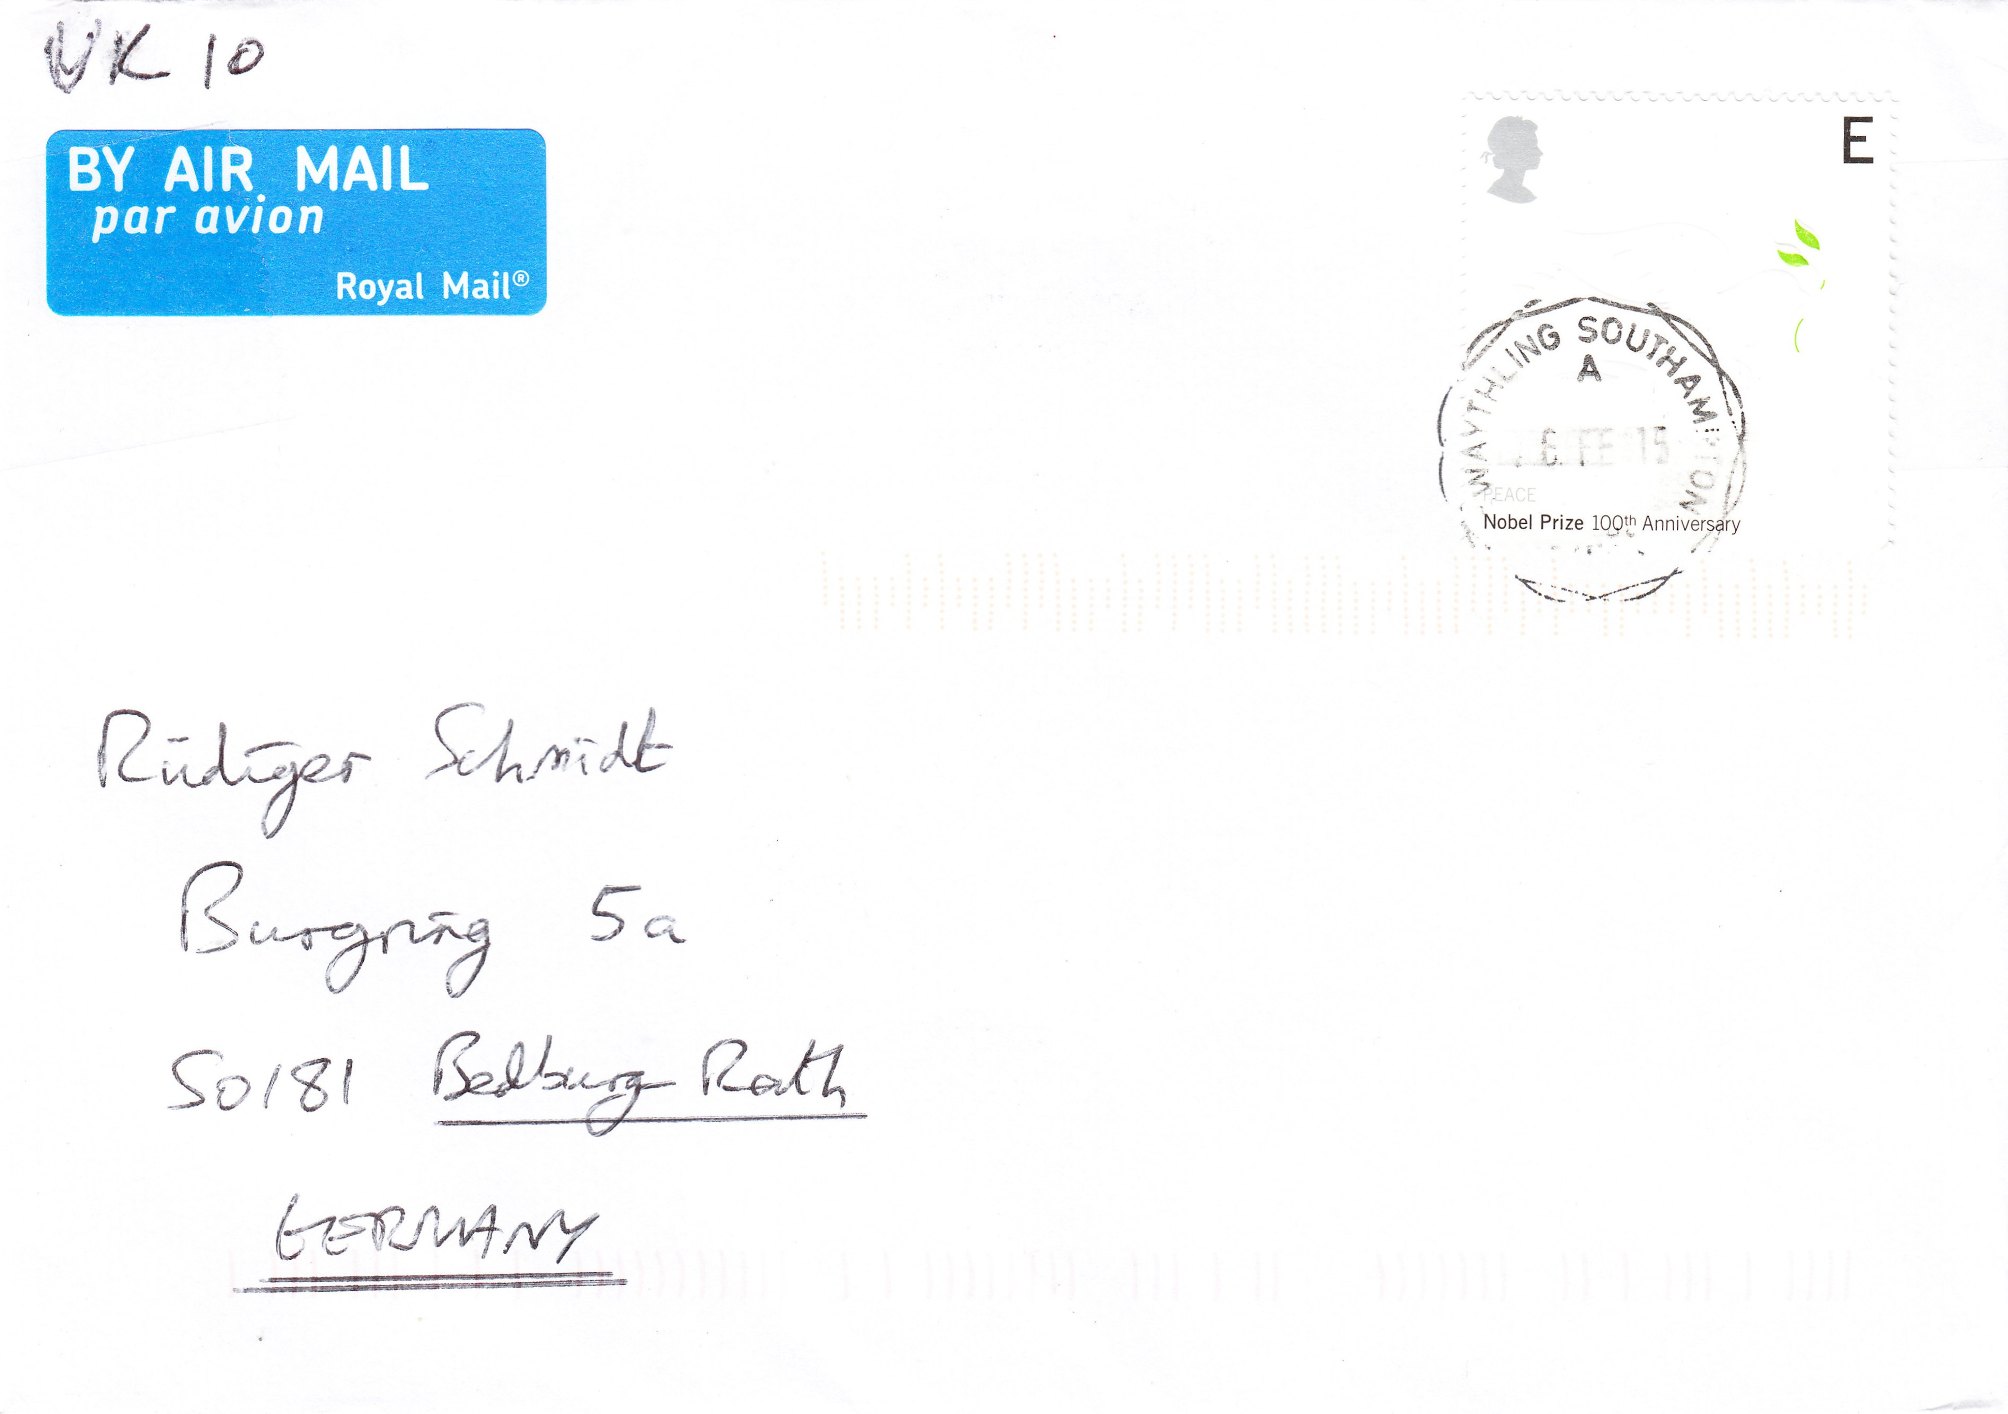 UK 10
BY AIR MAIL
par avion
Royal Mail®
E
SWAYTHLING SOUTHAMPTON
A
6 FE 15
PEACE
Nobel Prize 100th Anniversary
Rüdiger Schmidt
Burgring 5a
50181 Bedburg Rath
GERMANY